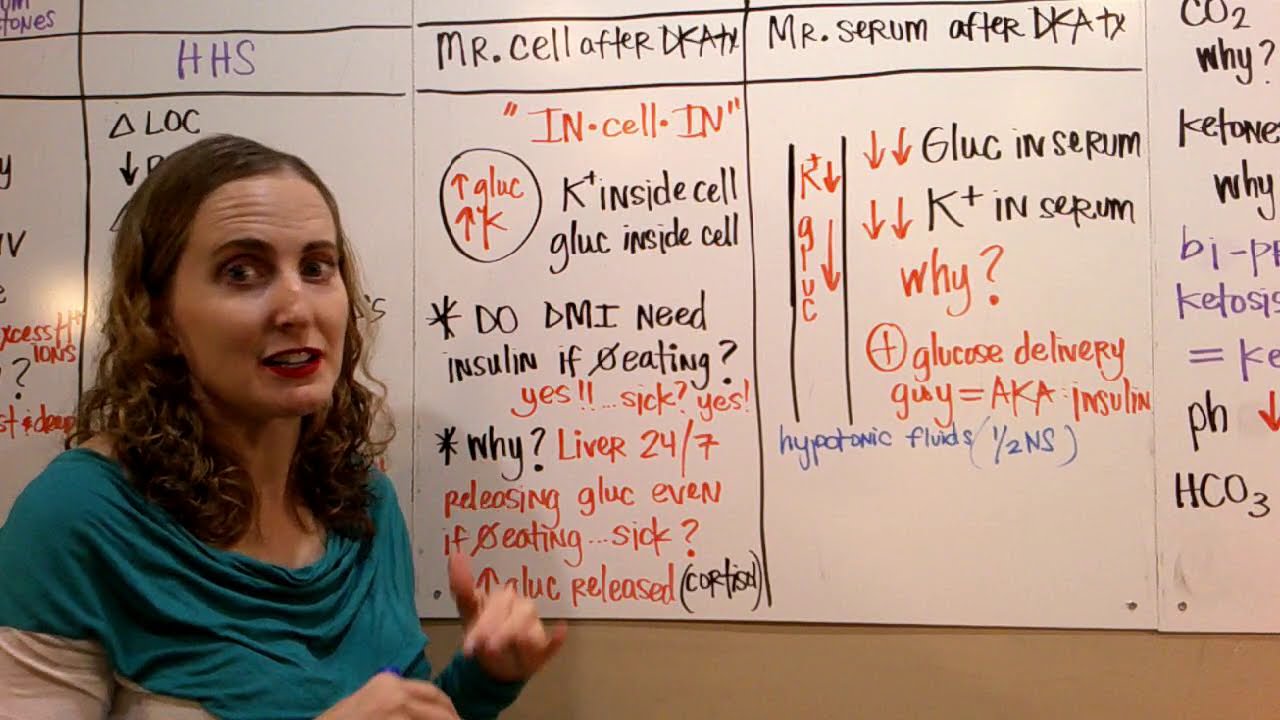 tones
HHS
Δ LOC
↓
y
IV
e
xcess H+
IONS
?
's
MR. cell after DKA tx
"IN·cell·IN"
↑ gluc
↑ K
K+ inside cell
gluc inside cell
* DO DMI Need
insulin if Øeating?
yes!!...sick? yes!
* Why? Liver 24/7
releasing gluc even
if Øeating...sick?
↑ gluc Released (cortisol)
MR. serum after DKA tx
K+↓
gluc ↓
↓↓ Gluc in serum
↓↓ K+ in serum
why?
⊕ glucose delivery
guy = AKA·insulin
hypotonic fluids (1/2NS)
CO2
why?
ketone
why
bi-p
ketosis
= ke
ph ↓
HCO3